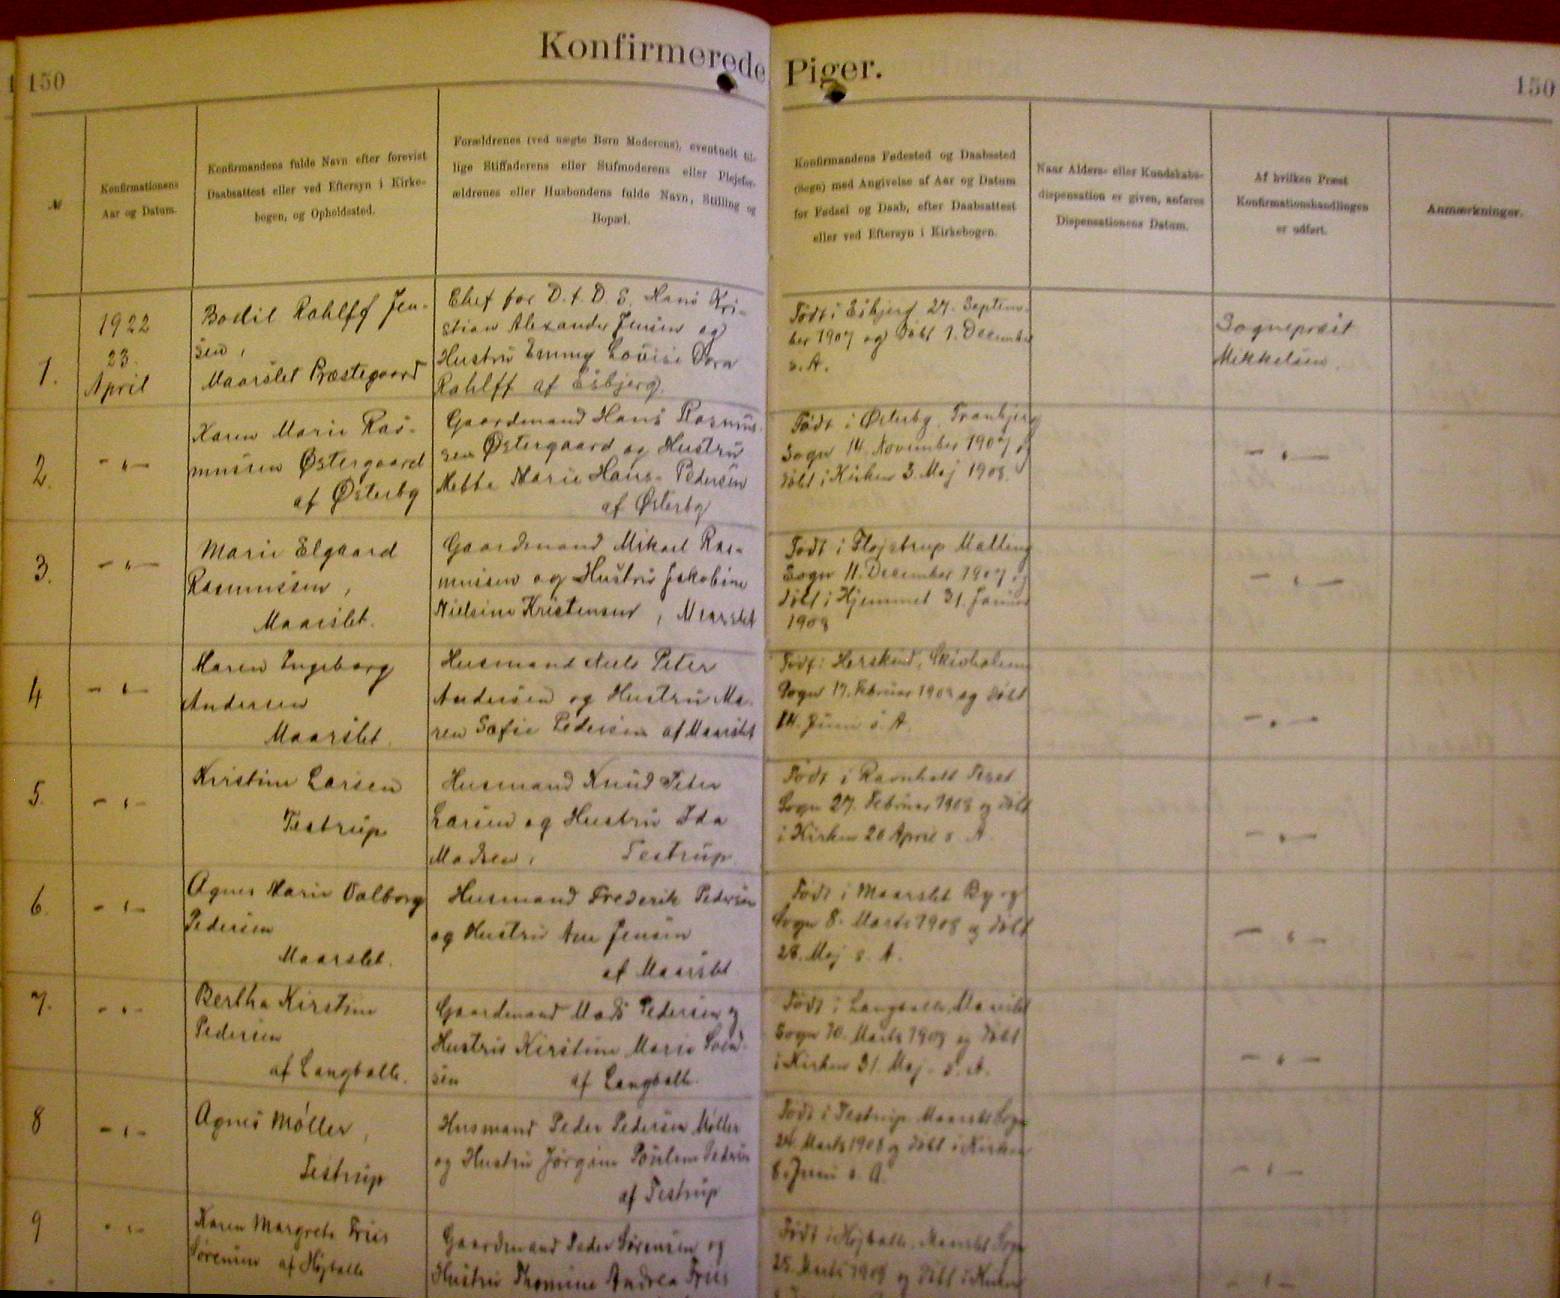 150
Konfirmerede Piger.
150
№
Konfirmationens
Aar og Datum.
Konfirmandens fulde Navn efter forevist
Daabsattest eller ved Eftersyn i Kirke-
bogen, og Opholdssted.
Forældrenes (ved uægte Børn Moderens), eventuelt til-
lige Stiffaderens eller Stifmoderens eller Plejefor-
ældrenes eller Husbondens fulde Navn, Stilling og
Bopæl.
Konfirmandens Fødested og Daabssted
(Sogn) med Angivelse af Aar og Datum
for Fødsel og Daab, efter Daabsattest
eller ved Eftersyn i Kirkebogen.
Naar Alders- eller Kundskabs-
dispensation er given, anføres
Dispensationens Datum.
Af hvilken Præst
Konfirmationshandlingen
er udført.
Anmærkninger.
1.
1922
23.
April
Bodil Rahlff Jen-
sen,
Maarslet Præstegaard
Chef for D.f.D.S. Hans Kri-
stian Alexander Jensen og
Hustru Emmy Louise Dora
Rahlff af Esbjerg.
Født i Esbjerg 27. Septem-
ber 1907 og døbt 1. December
s. A.
Sognepræst
Mikkelsen.
2.
- " -
Karen Marie Ras-
mussen Østergaard
af Østerby
Gaardmand Hans Rasmus-
sen Østergaard og Hustru
Mette Marie Hans- Pedersen
af Østerby
Født i Østerby, Tranbjerg
Sogn 14. November 1907 og
døbt i Kirken 3. Maj 1908.
- " -
3.
- " -
Marie Elgaard
Rasmussen,
Maarslet.
Gaardmand Mikael Ras-
mussen og Hustru Jakobine
Nielsine Kristensen, Maarslet
Født i Fløjstrup Malling
Sogn 11. December 1907 og
døbt i Hjemmet 31. Januar
1908
- " -
4
- " -
Maren Ingeborg
Andersen
Maarslet.
Husmand Niels Peter
Andersen og Hustru Ma-
ren Sofie Pedersen af Maarslet
Født i Herskind, Skivholme
Sogn 17. Februar 1908 og døbt
14. Juni s. A.
- " -
5.
- " -
Kirstine Larsen
Testrup
Husmand Knud Peter
Larsen og Hustru Ida
Madsen, Testrup.
Født i Ravnholt Tiset
Sogn 27. Februar 1908 og døbt
i Kirken 20 April s. A.
- " -
6.
- " -
Agnes Marie Valborg
Pedersen
Maarslet.
Husmand Frederik Pedersen
og Hustru Ane Jensen
af Maarslet
Født i Maarslet By og
Sogn 8. Marts 1908 og døbt
28. Maj s. A.
- " -
7.
- " -
Bertha Kirstine
Pedersen
af Langballe.
Gaardmand Mads Pedersen og
Hustru Kirstine Marie Svend-
sen af Langballe.
Født i Langballe, Maarslet
Sogn 10. Marts 1908 og døbt
i Kirken 31. Maj s. A.
- " -
8
- " -
Agnes Møller,
Testrup
Husmand Peder Pedersen Møller
og Hustru Jørgine Poulsen Pedersen
af Testrup
Født i Testrup Maarslet Sogn
24. Marts 1908 og døbt i Kirken
8. Juni s. A.
- " -
9
- " -
Karen Margrete Friis
Sørensen af Højballe
Gaardmand Peder Sørensen og
Hustru Thomine Andrea Friis
Født i Højballe, Maarslet Sogn
25. Marts 1908 og døbt i Kirken
- " -